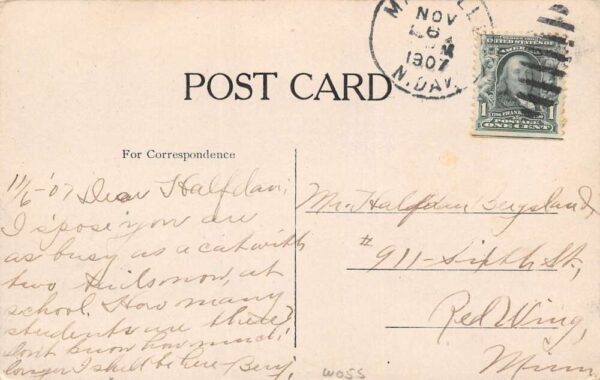 NOV
6
1907
N. DAK.
UNITED STATES OF AMERICA
1
POSTAGE
ONE CENT
POST CARD
For Correspondence
11/6-'07 Dear Halfdan:
I s'pose you are
as busy as a cat with
two tails now, at
school. How many
students are there?
don't know how much
longer I shall be here Benj.
Mr. Halfdan Bergsland,
# 911 - Sixth St.,
Red Wing,
Minn.
WOSS